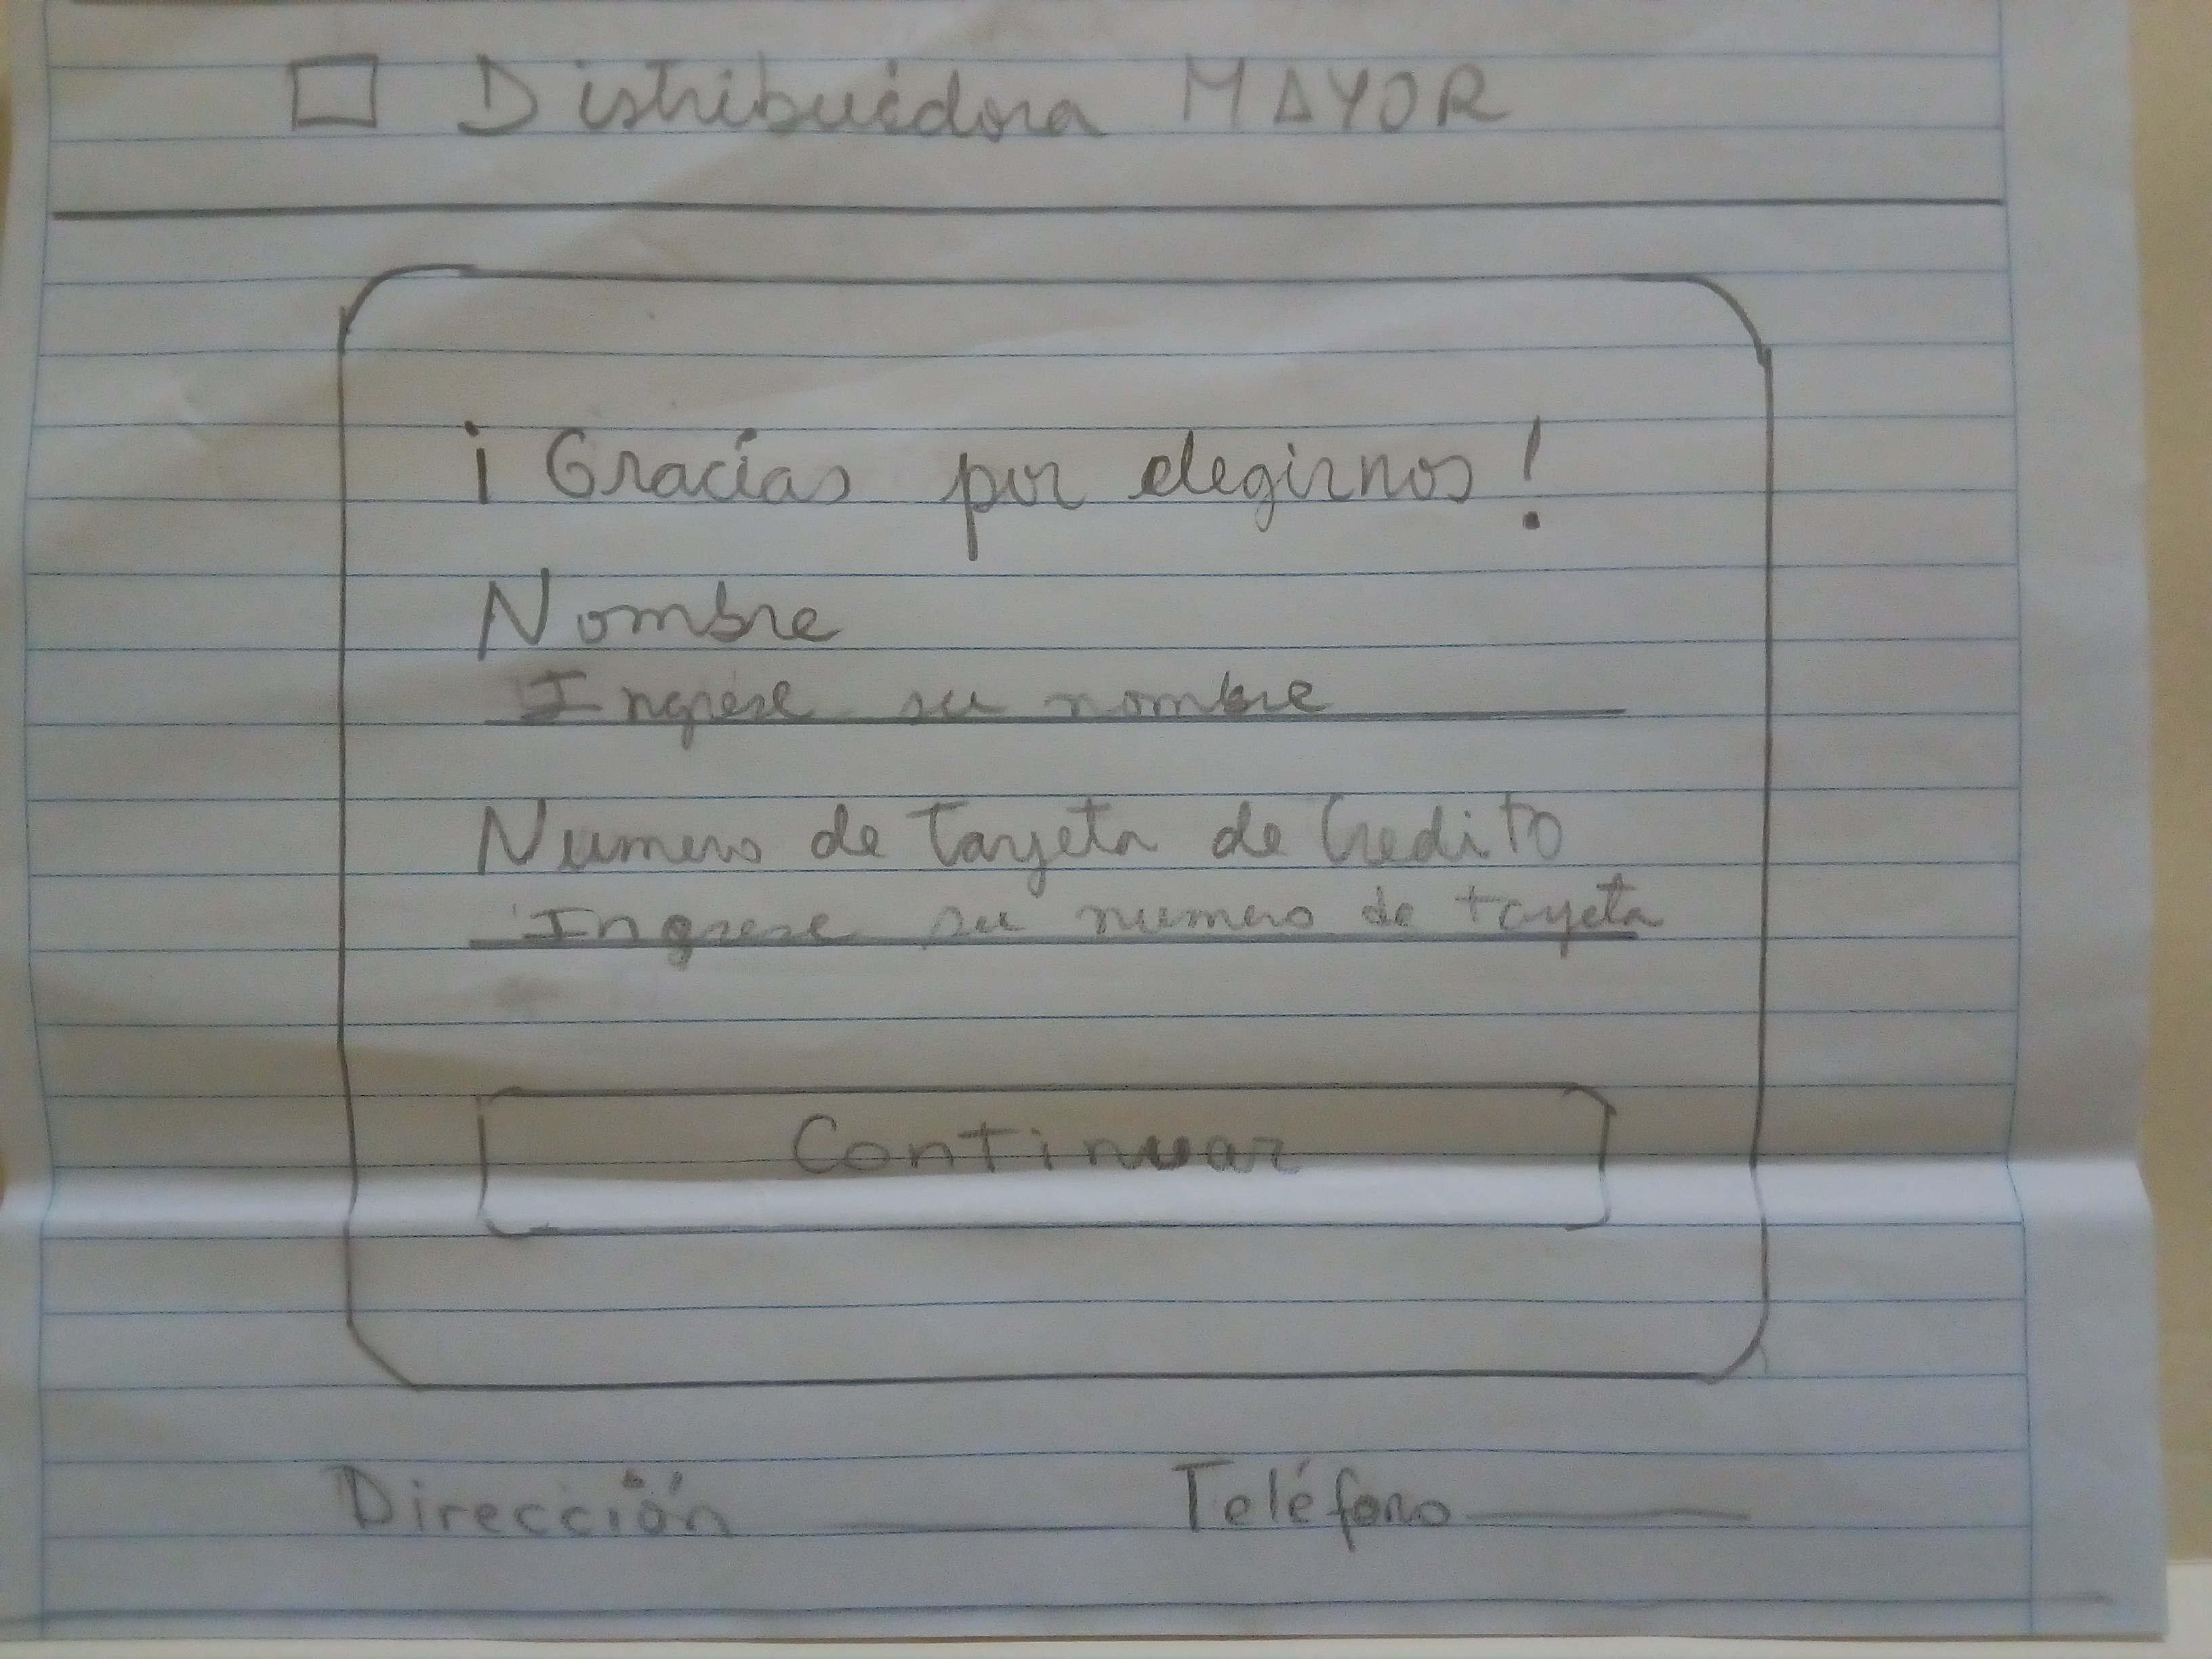 Distribuidora MAYOR
¡Gracias por elegirnos!
Nombre
Ingrese su nombre
Numero de tarjeta de Credito
Ingrese su numero de tarjeta
Continuar
Dirección Teléfono